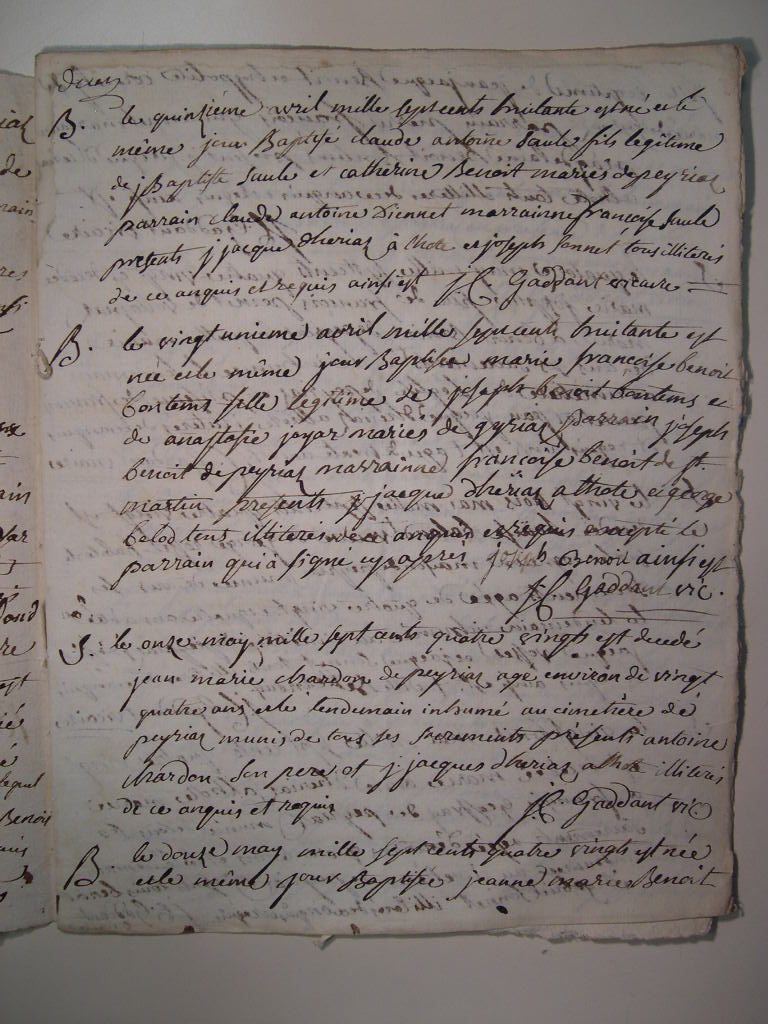 B. le quinzième avril mille sept cents huitante est né et le
même jour Baptisé claude antoine Saule fils legitime
de j Baptiste Saule et catherine Benoit mariés de peyriaz
parrain claude antoine marrainne françoise Saule
presents j jacque dheriaz à lhote et joseph tous illiterés
de ce anquis et requis ainsi est Gaddant vicaire
B. le vingt unieme avril mille sept cents huitante est
née et le même jour Baptisée marie françoise benoit
bontems fille legitime de joseph benoit bontems et
de anastasie joyar mariés de gyriaz parrain joseph
benoit de peyriaz marrainne françoise benoit de st.
martin presents j jacque dhériaz a lhote et george
belod tous illiterés de ce anquis et requis excepté le
parrain qui a signé cy apres joseph Benoit ainsi est
Gaddant vic.
S. le onze may mille sept cents quatre vingts est decedé
jean marie chardon de peyriaz age environ de vingt
quatre ans et le lendemain inhumé au cimetière de
peyriaz munis de tous ses sacrements présents antoine
chardon son pere et j. jacques dheriaz a lhote illiterés
de ce anquis et requis Gaddant vic
B. le douze may mille sept cents quatre vingts est née
et le même jour Baptisée jeanne marie Benoit